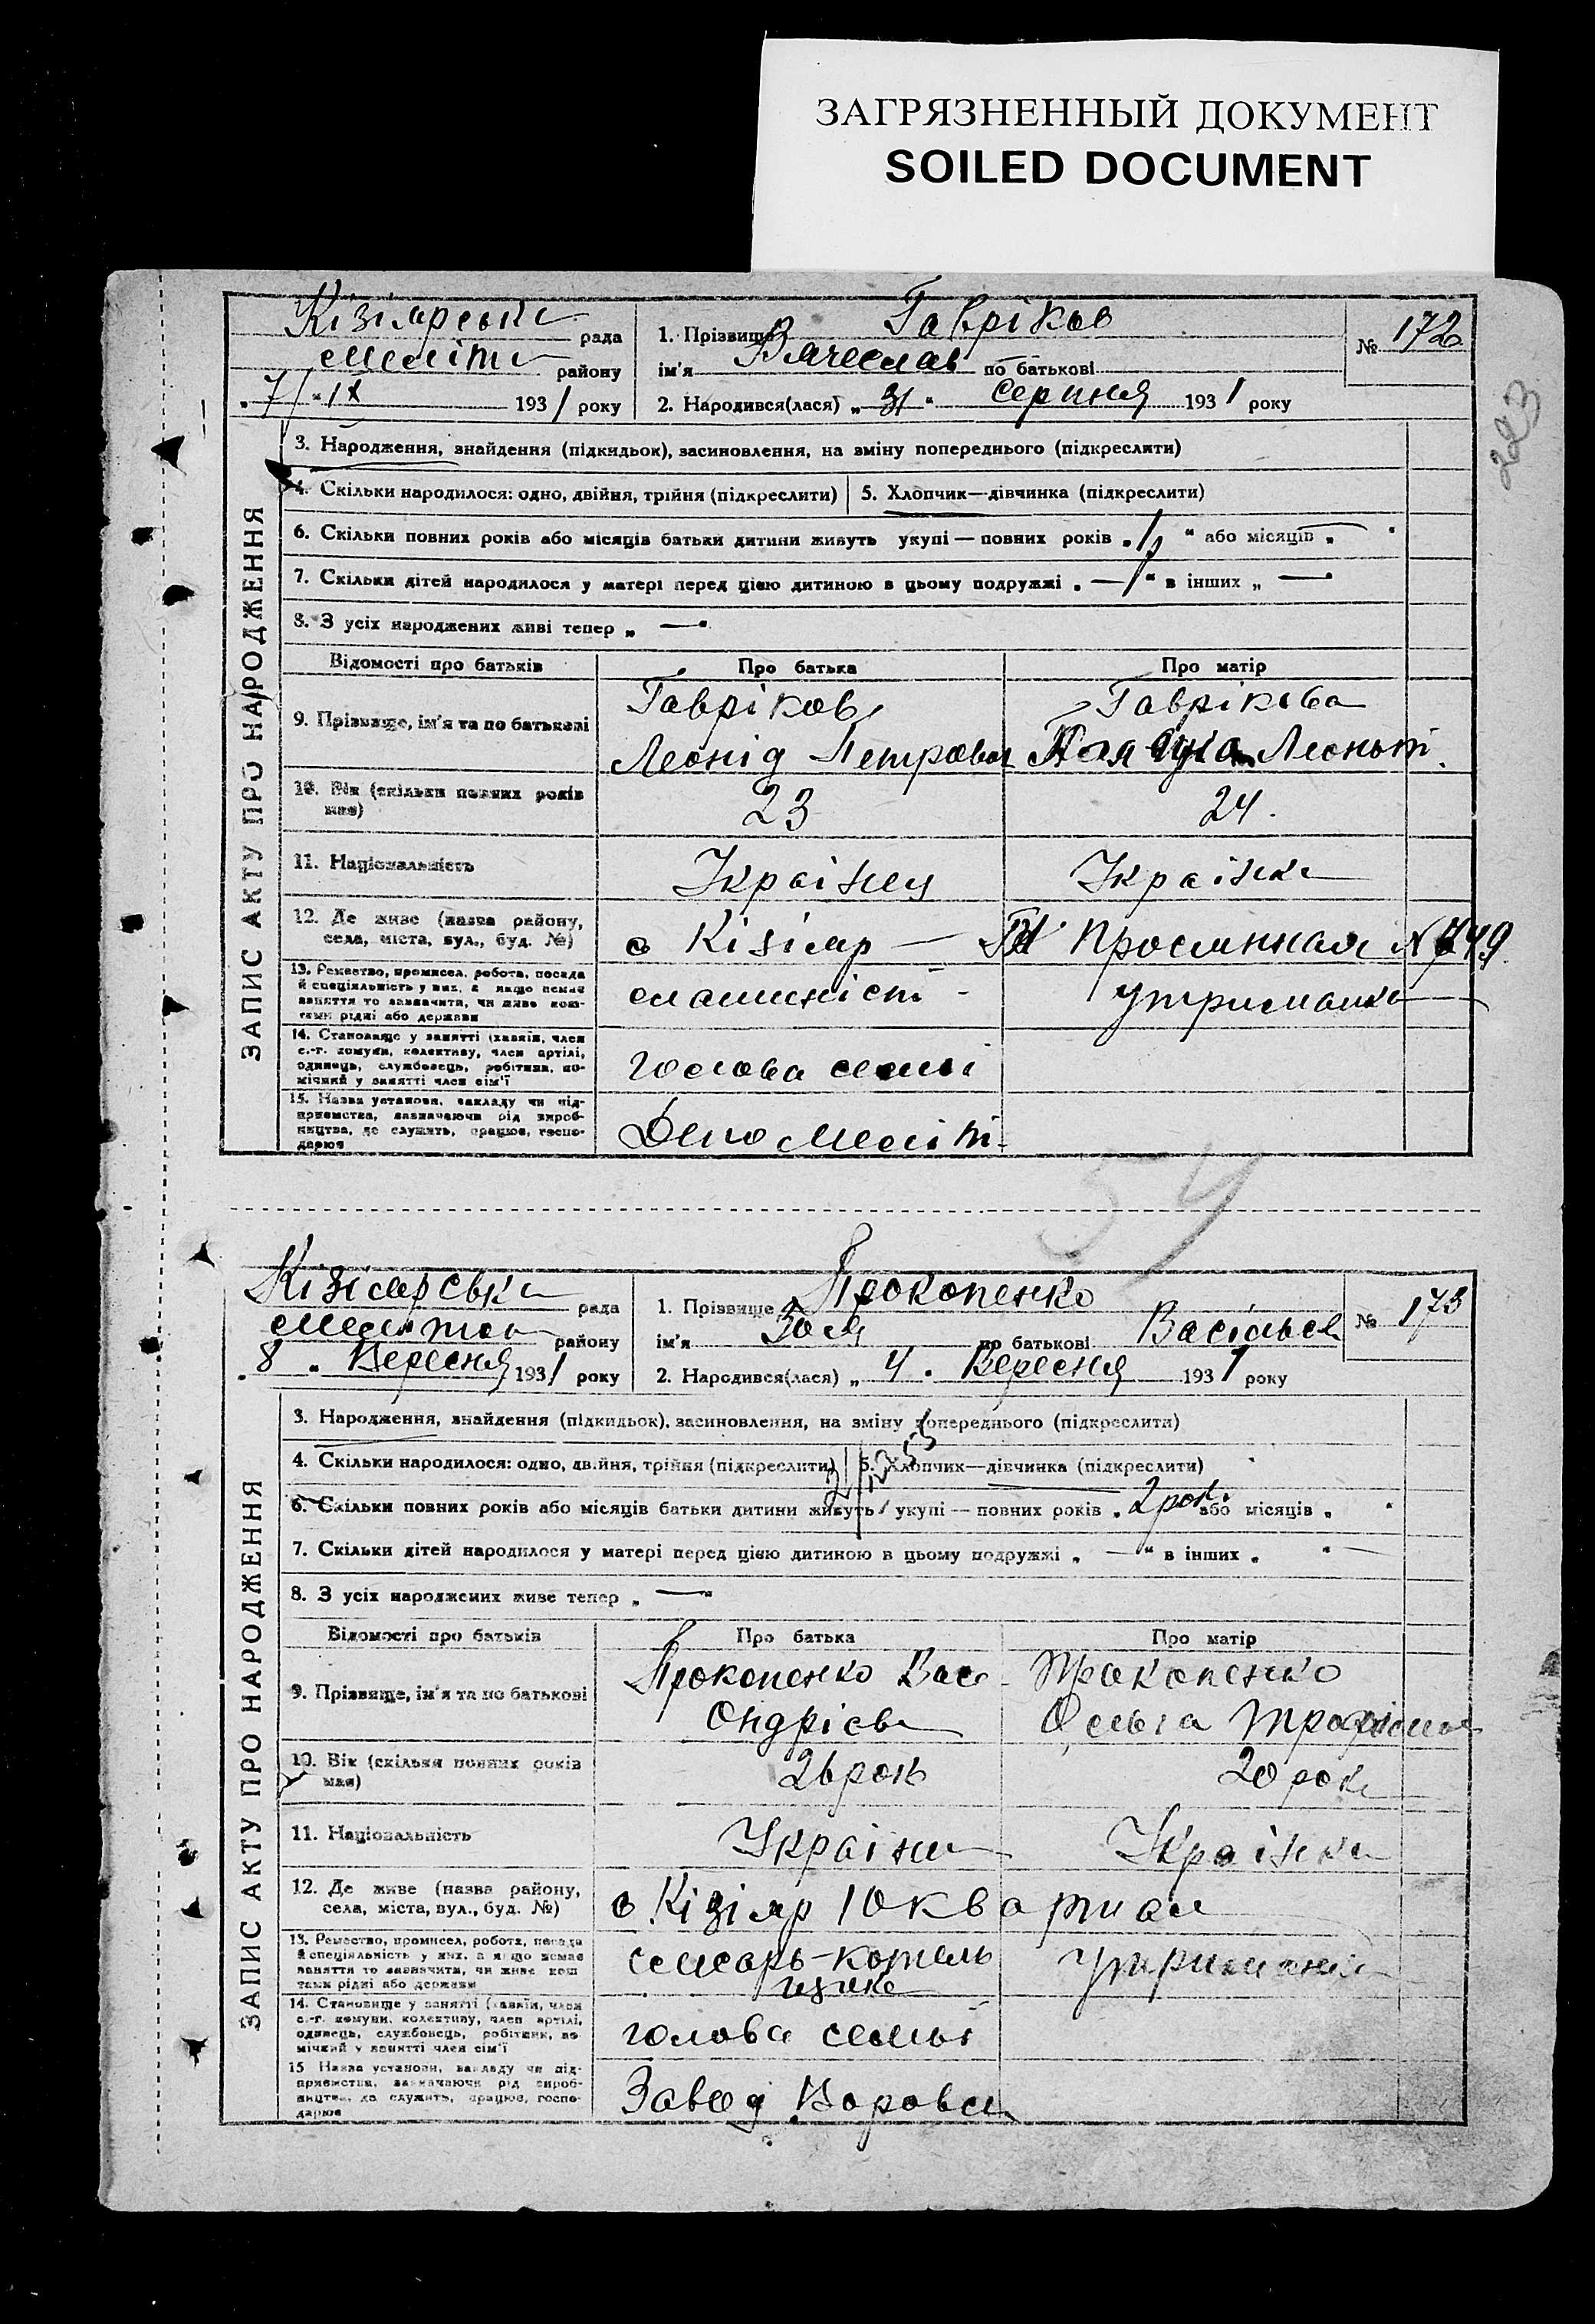 ЗАГРЯЗНЕННЫЙ ДОКУМЕНТ
SOILED DOCUMENT
223
ЗАПИС АКТУ ПРО НАРОДЖЕННЯ
Кізіярська рада
району
"7" IX 1931 року
1. Прізвище Гавріков
ім'я Вячеслав по батькові
2. Народився(лася) „31" серпня 1931 року
№ 172
3. Народження, знайдення (підкидьок), засиновлення, на зміну попереднього (підкреслити)
4. Скільки народилося: одно, двійня, трійня (підкреслити)
5. Хлопчик—дівчинка (підкреслити)
6. Скільки повних років або місяців батьки дитини живуть укупі — повних років „1" або місяців „—"
7. Скільки дітей народилося у матері перед цією дитиною в цьому подружжі „—" в інших „—"
8. З усіх народжених живі тепер „—"
Відомості про батьків
Про батька
Про матір
9. Прізвище, ім'я та по батькові
Гавріков
Леонід Петрович
Гаврікова
Леонт
10. Вік (скільки повних років має)
23
24.
11. Національність
Українец
Українка
12. Де живе (назва району,
села, міста, вул., буд. №)
с Кізіяр —
№ 749
13. Ремество, промисел, робота, посада
й спеціяльність у них, а якщо немає
заняття то зазначити, чи живе кош-
тами рідні або держави
машиніст -
утриманка
14. Становище у занятті (хазяїн, член
с.-г. комуни, колективу, член артілі,
одинець, службовець, робітник, по-
мічний у занятті член сім'ї
голова семьї
15. Назва установи, закладу чи під-
приємства, зазначаючи рід вироб-
ництва, де служить, працює, госпо-
дарює
Депо Меліт-
54
ЗАПИС АКТУ ПРО НАРОДЖЕННЯ
Кізіярська рада
району
"8" Вересня 1931 року
1. Прізвище Прокопенко
ім'я Зоя по батькові Васільев
2. Народився(лася) „4" Вересня 1931 року
№ 173
3. Народження, знайдення (підкидьок), засиновлення, на зміну попереднього (підкреслити)
4. Скільки народилося: одно, двійня, трійня (підкреслити)
5. Хлопчик—дівчинка (підкреслити)
6. Скільки повних років або місяців батьки дитини живуть укупі — повних років „2 рок. або місяців „ "
7. Скільки дітей народилося у матері перед цією дитиною в цьому подружжі „—" в інших „ "—
8. З усіх народжених живе тепер „—"
Відомості про батьків
Про батька
Про матір
9. Прізвище, ім'я та по батькові
Прокопенко Вас
Ондрієв
Прокопенко
Ольга Трофімов
10. Вік (скільки повних років має)
26 рок
20 рок
11. Національність
Україн
Українка
12. Де живе (назва району,
села, міста, вул., буд. №)
с Кізіяр 10 квартал
13. Ремество, промисел, робота, посада
й спеціяльність у них, а якщо немає
заняття то зазначити, чи живе кош-
тами рідні або держави
слюсарь-котель
утриманка
14. Становище у занятті (хазяїн, член
с.-г. комуни, колективу, член артілі,
одинець, службовець, робітник, по-
мічний у занятті член сім'ї
голова семьї
15 Назва установи, закладу чи під-
приємства, зазначаючи рід вироб-
ництва, де служить, працює, госпо-
дарює
Завод Воровск